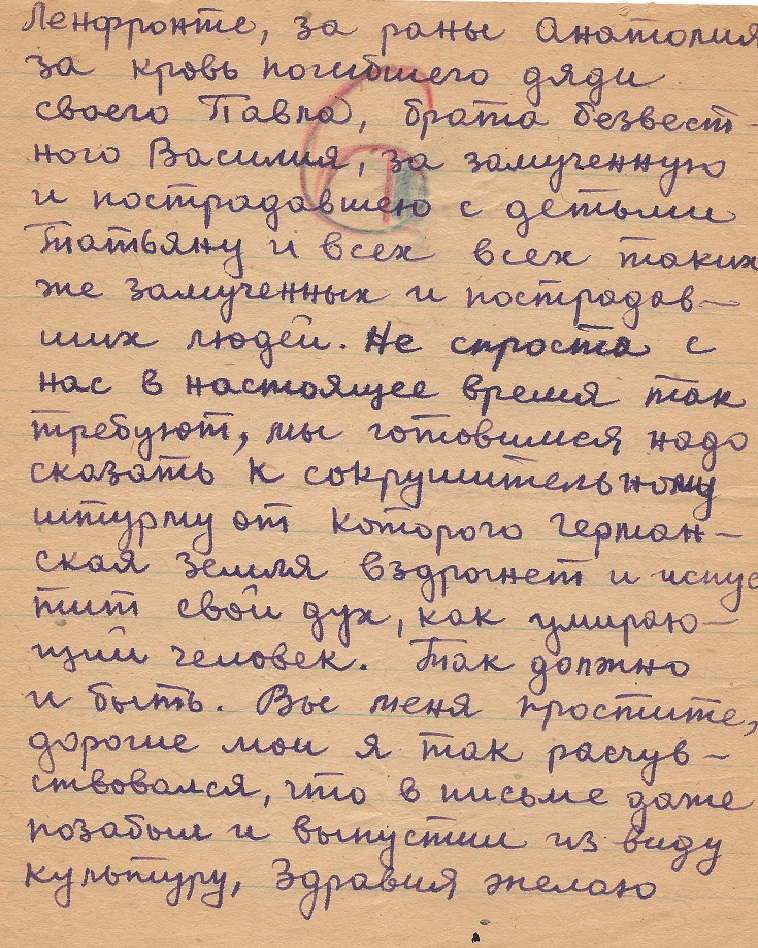 Ленфронте, за раны Анатолия
за кровь погибшего дяди
своего Павла, брата безвест-
ного Василия, за замученную
и пострадавшею с детьми
Татьяну и всех всех таких
же замученных и пострадав-
ших людей. Не спроста с
нас в настоящее время так
требуют, мы готовимся надо
сказать к сокрушительному
штурму от которого Герман-
ская земля вздрогнет и испус
тит свой дух, как умираю-
щий человек. Так должно
и быть. Вы меня простите,
дорогие мои я так расчув-
ствовался, что в письме даже
позабыл и выпустил из виду
культуру, Здравия желаю